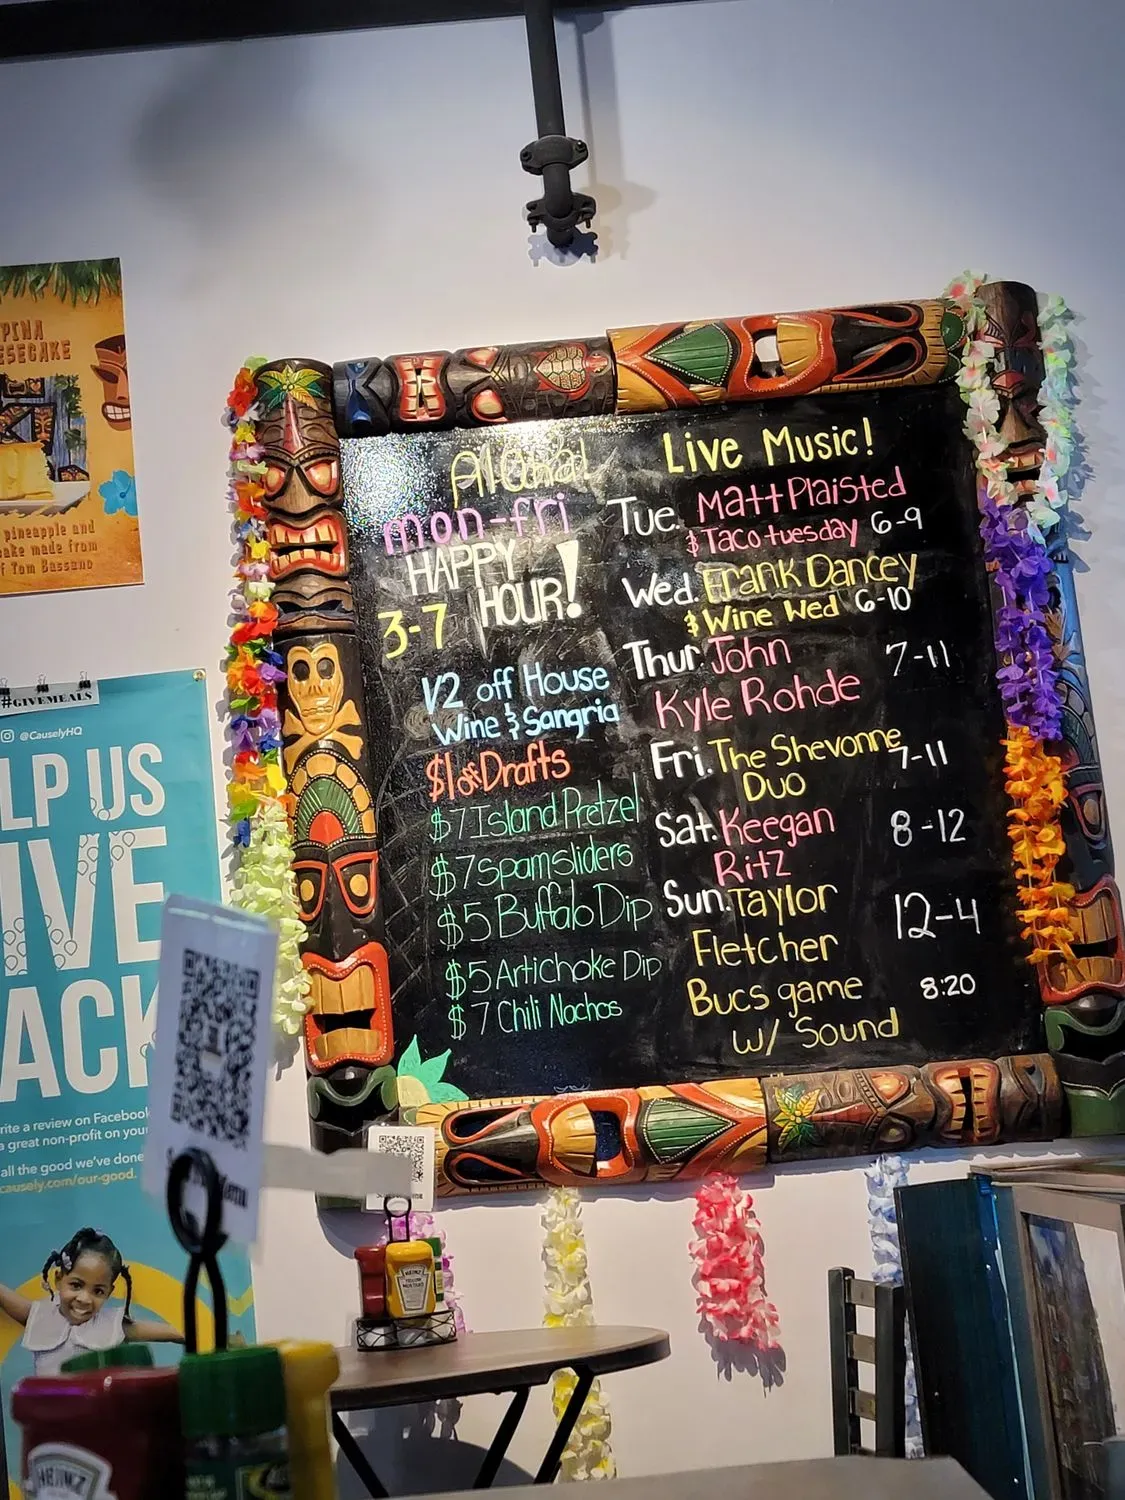 PINA
ESECAKE
pineapple and
ake made from
f Tom Bassano
#GIVEMEALS
@CauselyHQ
LP US
IVE
ACK
rite a review on Facebook
a great non-profit on your
all the good we've done
causely.com/our-good.
mon-fri
HAPPY
HOUR!
3-7
1/2 off House
Wine & Sangria
$1 off Drafts
$7 Island Pretzel
$7 Spam sliders
$5 Buffalo Dip
$5 Artichoke Dip
$7 Chili Nachos
Live Music!
Tue. Matt Plaisted
& Taco tuesday 6-9
Wed. Frank Dancey
& Wine Wed 6-10
Thur. John 7-11
Kyle Rohde
Fri. The Shevonne 7-11
Duo
Sat. Keegan 8-12
Ritz
Sun. Taylor 12-4
Fletcher
Bucs game 8:20
w/ Sound
HEINZ
HEINZ